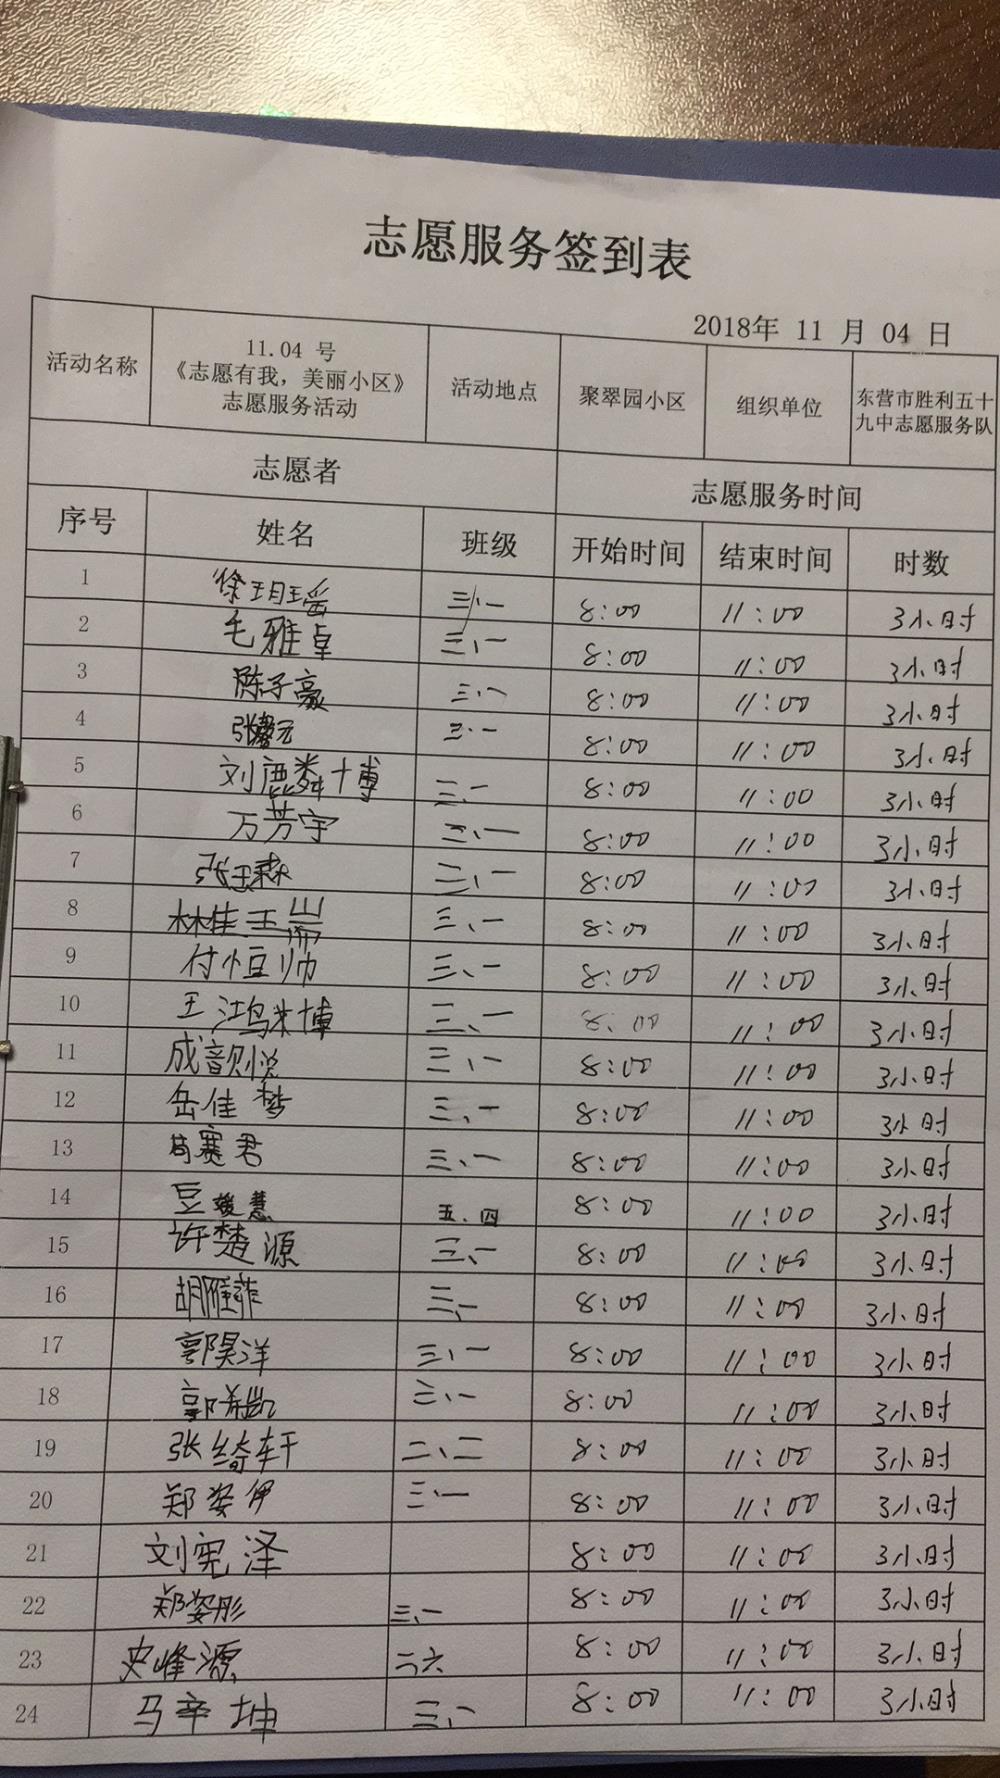 志愿服务签到表
2018年 11 月 04 日
活动名称 11.04 号《志愿有我，美丽小区》志愿服务活动 活动地点 聚翠园小区 组织单位 东营市胜利五十九中志愿服务队
志愿者 志愿服务时间
序号 姓名 班级 开始时间 结束时间 时数
1 徐玥瑶 三、一 8:00 11:00 3小时
2 毛雅卓 三、一 8:00 11:00 3小时
3 陈子豪 三、一 8:00 11:00 3小时
4 三、一 8:00 11:00 3小时
5 刘麟博 三、一 8:00 11:00 3小时
6 万芳宇 三、一 8:00 11:00 3小时
7 三、一 8:00 11:00 3小时
8 林佳 三、一 8:00 11:00 3小时
9 付恒帅 三、一 8:00 11:00 3小时
10 王鸿博 三、一 8:00 11:00 3小时
11 成韵悦 三、一 8:00 11:00 3小时
12 岳佳梦 三、一 8:00 11:00 3小时
13 苟赛君 三、一 8:00 11:00 3小时
14 豆媛慧 五、四 8:00 11:00 3小时
15 许楚源 三、一 8:00 11:00 3小时
16 三、一 8:00 11:00 3小时
17 郭昊洋 三、一 8:00 11:00 3小时
18 三、一 8:00 11:00 3小时
19 张绮轩 二、二 8:00 11:00 3小时
20 郑姿伊 三、一 8:00 11:00 3小时
21 刘宪泽 8:00 11:00 3小时
22 郑姿彤 三、一 8:00 11:00 3小时
23 史峰源 二六 8:00 11:00 3小时
24 马辛坤 三、一 8:00 11:00 3小时